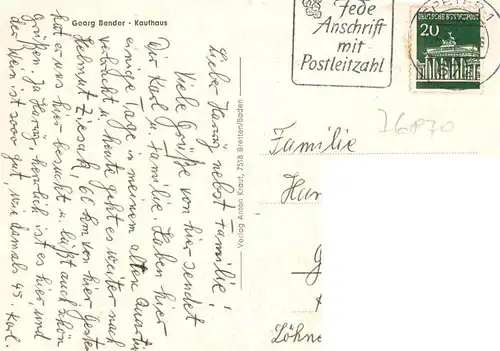 Georg Bender - Kaufhaus
Liebe Harry nebst Familie!
Viele Grüße von hier sendet
Dir Karl u. Familie. Haben hier
einige Tage in meinem alten Quartier
verbracht u. heute geht es weiter nach
Helmut 60 km von hier. Gestern
hat er uns hier besucht u. läßt auch schön
Grüßen. Ja Harry, herrlich ist es hier, und
der Wein ist soo gut, wie damals 45. Karl.
Verlag Anton Kraut, 7518 Bretten/Baden
Jede
Anschrift
mit
Postleitzahl
DEUTSCHE BUNDESPOST
20
76870
Familie
Har
G
Löhne